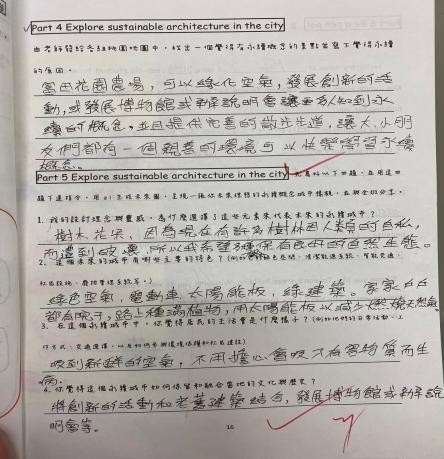 Part 4 Explore sustainable architecture in the city
由老師發給各組桃園地圖中,找出一個覺得有永續概念的景點並寫下覺得永續
的原因。
富田花園農場,可以綠化空氣,發展創新的活
動,或發展博物館或新辦說明會讓更多人知到永
續的概念,並且提供完善的散步步道,讓大、小朋
友們都有一個親善的環境可以快樂學習永續
概念。
Part 5 Explore sustainable architecture in the city
1. 我的設計理念與靈感,為什麼選擇了這些元素來代表未來的永續城市?
樹木花朵,因為現在有許多樹林因人類的自私,
而遭到破壞,所以我希望確保有良好的自然生態。
2. 這個未來的城市中有哪些主要的特色?
綠色空氣,電動車,太陽能板,綠建築。家家戶戶
都有院子,路上種滿植物,用太陽能板以減少燃燒天然氣。
3. 在這個永續城市中,你覺得居民的生活會是什麼樣子?
吸到新鮮的空氣,不用擔心會吸入有害物質而生
病。
4. 你覺得這個永續城市中如何保留和融合當地的文化與歷史?
將創新的活動和老舊建築結合,發展博物館或新辦說
明會等。
16